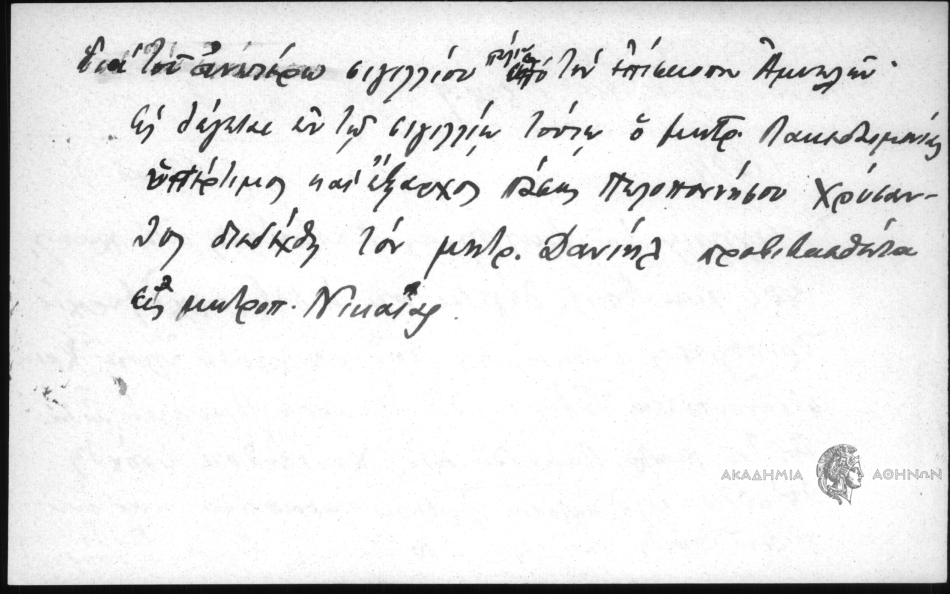 διὰ τοῦ ἀνωτέρω σιγιλλίου ὑπὸ τὴν ἐπίσκοπον Ἀμυκλῶν.
Ὡς λέγεται ἐν τῷ σιγιλλίῳ τούτῳ ὁ μητρ. Λακεδαιμονίας
ὑπέρτιμος καὶ ἔξαρχος πάσης Πελοποννήσου Χρύσαν-
θος διεδέχθη τὸν μητρ. Δανιὴλ προβιβασθέντα
εἰς μητροπ. Νικαίας.
ΑΚΑΔΗΜΙΑ ΑΘΗΝΩΝ